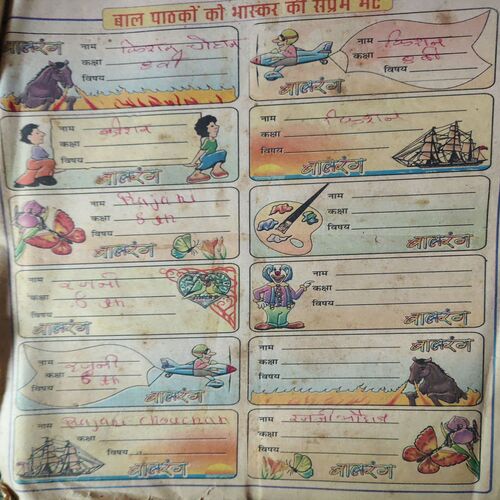 बाल पाठकों को भास्कर की सप्रेम भेंट
बालरंग
नाम किशन चौहान
कक्षा 8वी
विषय
नाम किशन
कक्षा 8वी
विषय
बालरंग
नाम किशन
कक्षा
विषय
बालरंग
नाम किशन
कक्षा
विषय
बालरंग
नाम Rajani
कक्षा 8th
विषय
बालरंग
नाम
कक्षा
विषय
बालरंग
नाम रजनी
कक्षा 8th
विषय
बालरंग
नाम
कक्षा
विषय
बालरंग
नाम रजनी
कक्षा 8th
विषय
बालरंग
बालरंग
नाम
कक्षा
विषय
नाम Rajani Chouchan
कक्षा
विषय
बालरंग
नाम रजनी चौहान
कक्षा
विषय
बालरंग